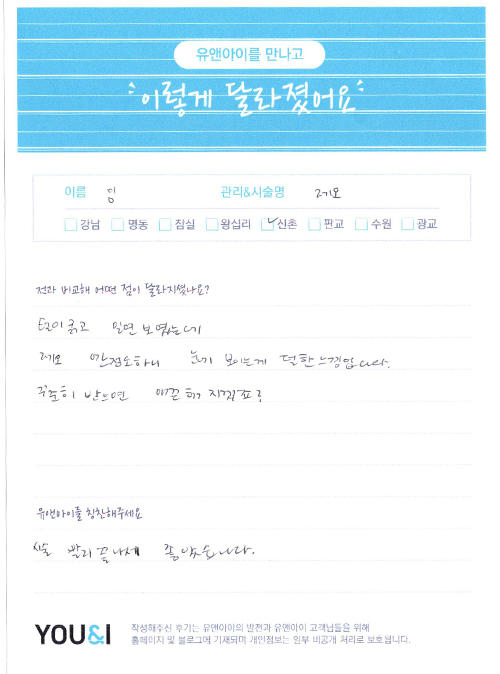 유앤아이를 만나고
이렇게 달라졌어요
이름 임 관리&시술명 제모
강남 명동 잠실 왕십리 신촌 판교 수원 광교
전과 비교해 어떤 점이 달라지셨나요?
털이 굵고 밀면 보였는데
제모 하니 눈에 보이는게 덜한 느낌입니다.
꾸준히 받으면 해 지겠죠?
유앤아이를 칭찬해주세요
시술 빨리 끝나서 좋았습니다.
YOU&I
작성해주신 후기는 유앤아이의 발전과 유앤아이 고객님들을 위해
홈페이지 및 블로그에 기재되며 개인정보는 일부 비공개 처리로 보호됩니다.